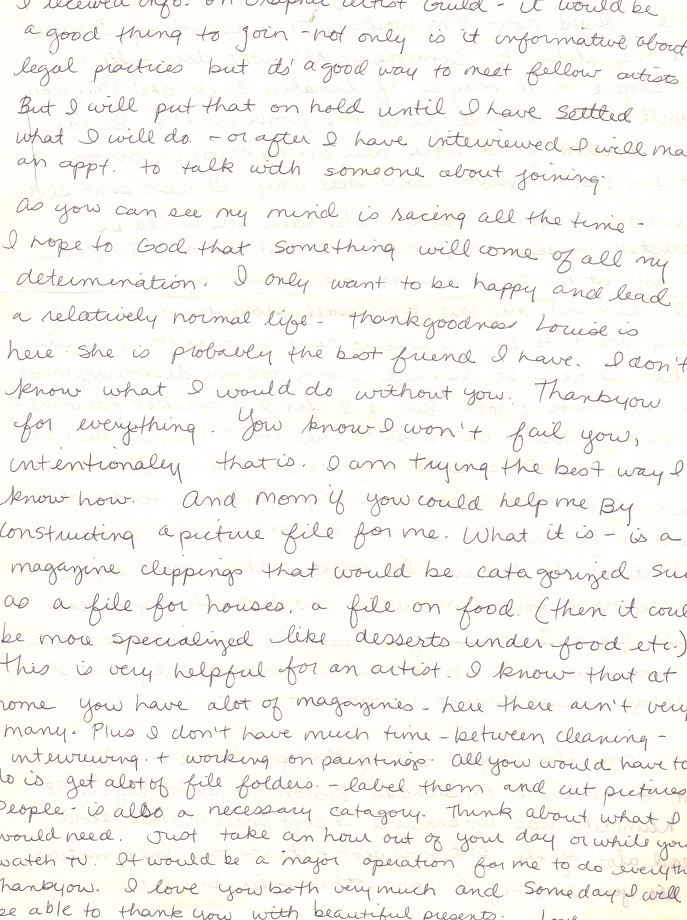 I received info. on Graphic Artist Guild - it would be
a good thing to join - not only is it informative about
legal practices but its a good way to meet fellow artists
But I will put that on hold until I have settled
what I will do - or after I have interviewed I will ma
an appt. to talk with someone about joining.
As you can see my mind is racing all the time -
I hope to God that something will come of all my
determination. I only want to be happy and lead
a relatively normal life - thankgoodness Louise is
here. She is probably the best friend I have. I don't
know what I would do without you. Thankyou
for everything. You know I won't fail you,
intentionaley that is. I am trying the best way I
know how. And Mom if you could help me By
constructing a picture file for me. What it is - is a
magazine clippings that would be catagorized suc
as a file for houses, a file on food. (then it coul
be more specialized like desserts under food etc.)
This is very helpful for an artist. I know that at
home you have alot of magazines - here there ain't very
many. Plus I don't have much time - between cleaning -
interviewing + working on paintings. All you would have to
do is get alot of file folders - label them and cut pictures
People - is also a necessary catagory. Think about what I
would need. Just take an hour out of your day or while you
watch TV. It would be a major operation for me to do everyth
Thankyou. I love you both very much and Someday I will
be able to thank you with beautiful presents. Love